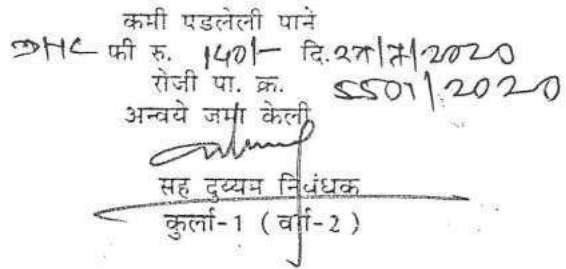 कमी पडलेली पाने
DHC फी रु. 140/- दि. 27/7/2020
रोजी पा. क्र. 5507/2020
अन्वये जमा केली
सह दुय्यम निबंधक
कुर्ला-1 ( वर्ग-2 )